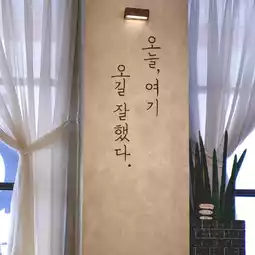 오늘, 여기
오길 잘했다.